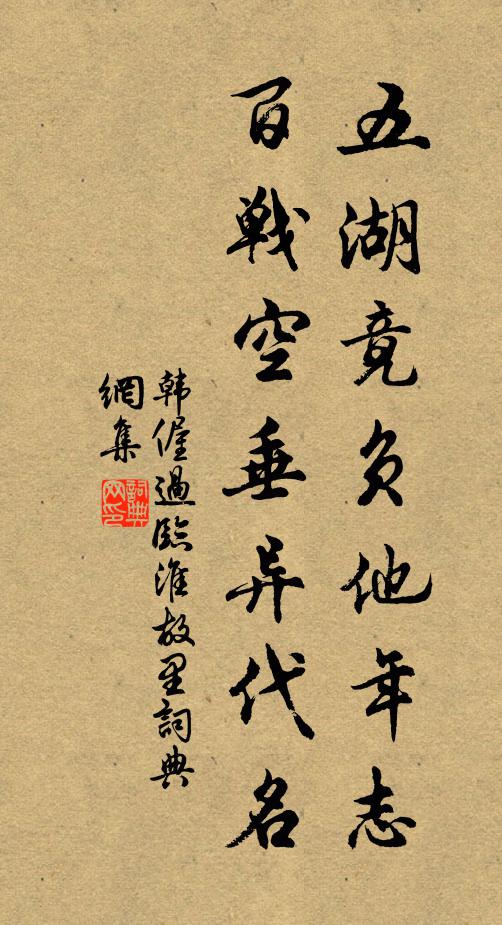 五湖竟负他年志
百戰空垂异代名
韩偓過臨淮故里詞典
網集
詞典
网印